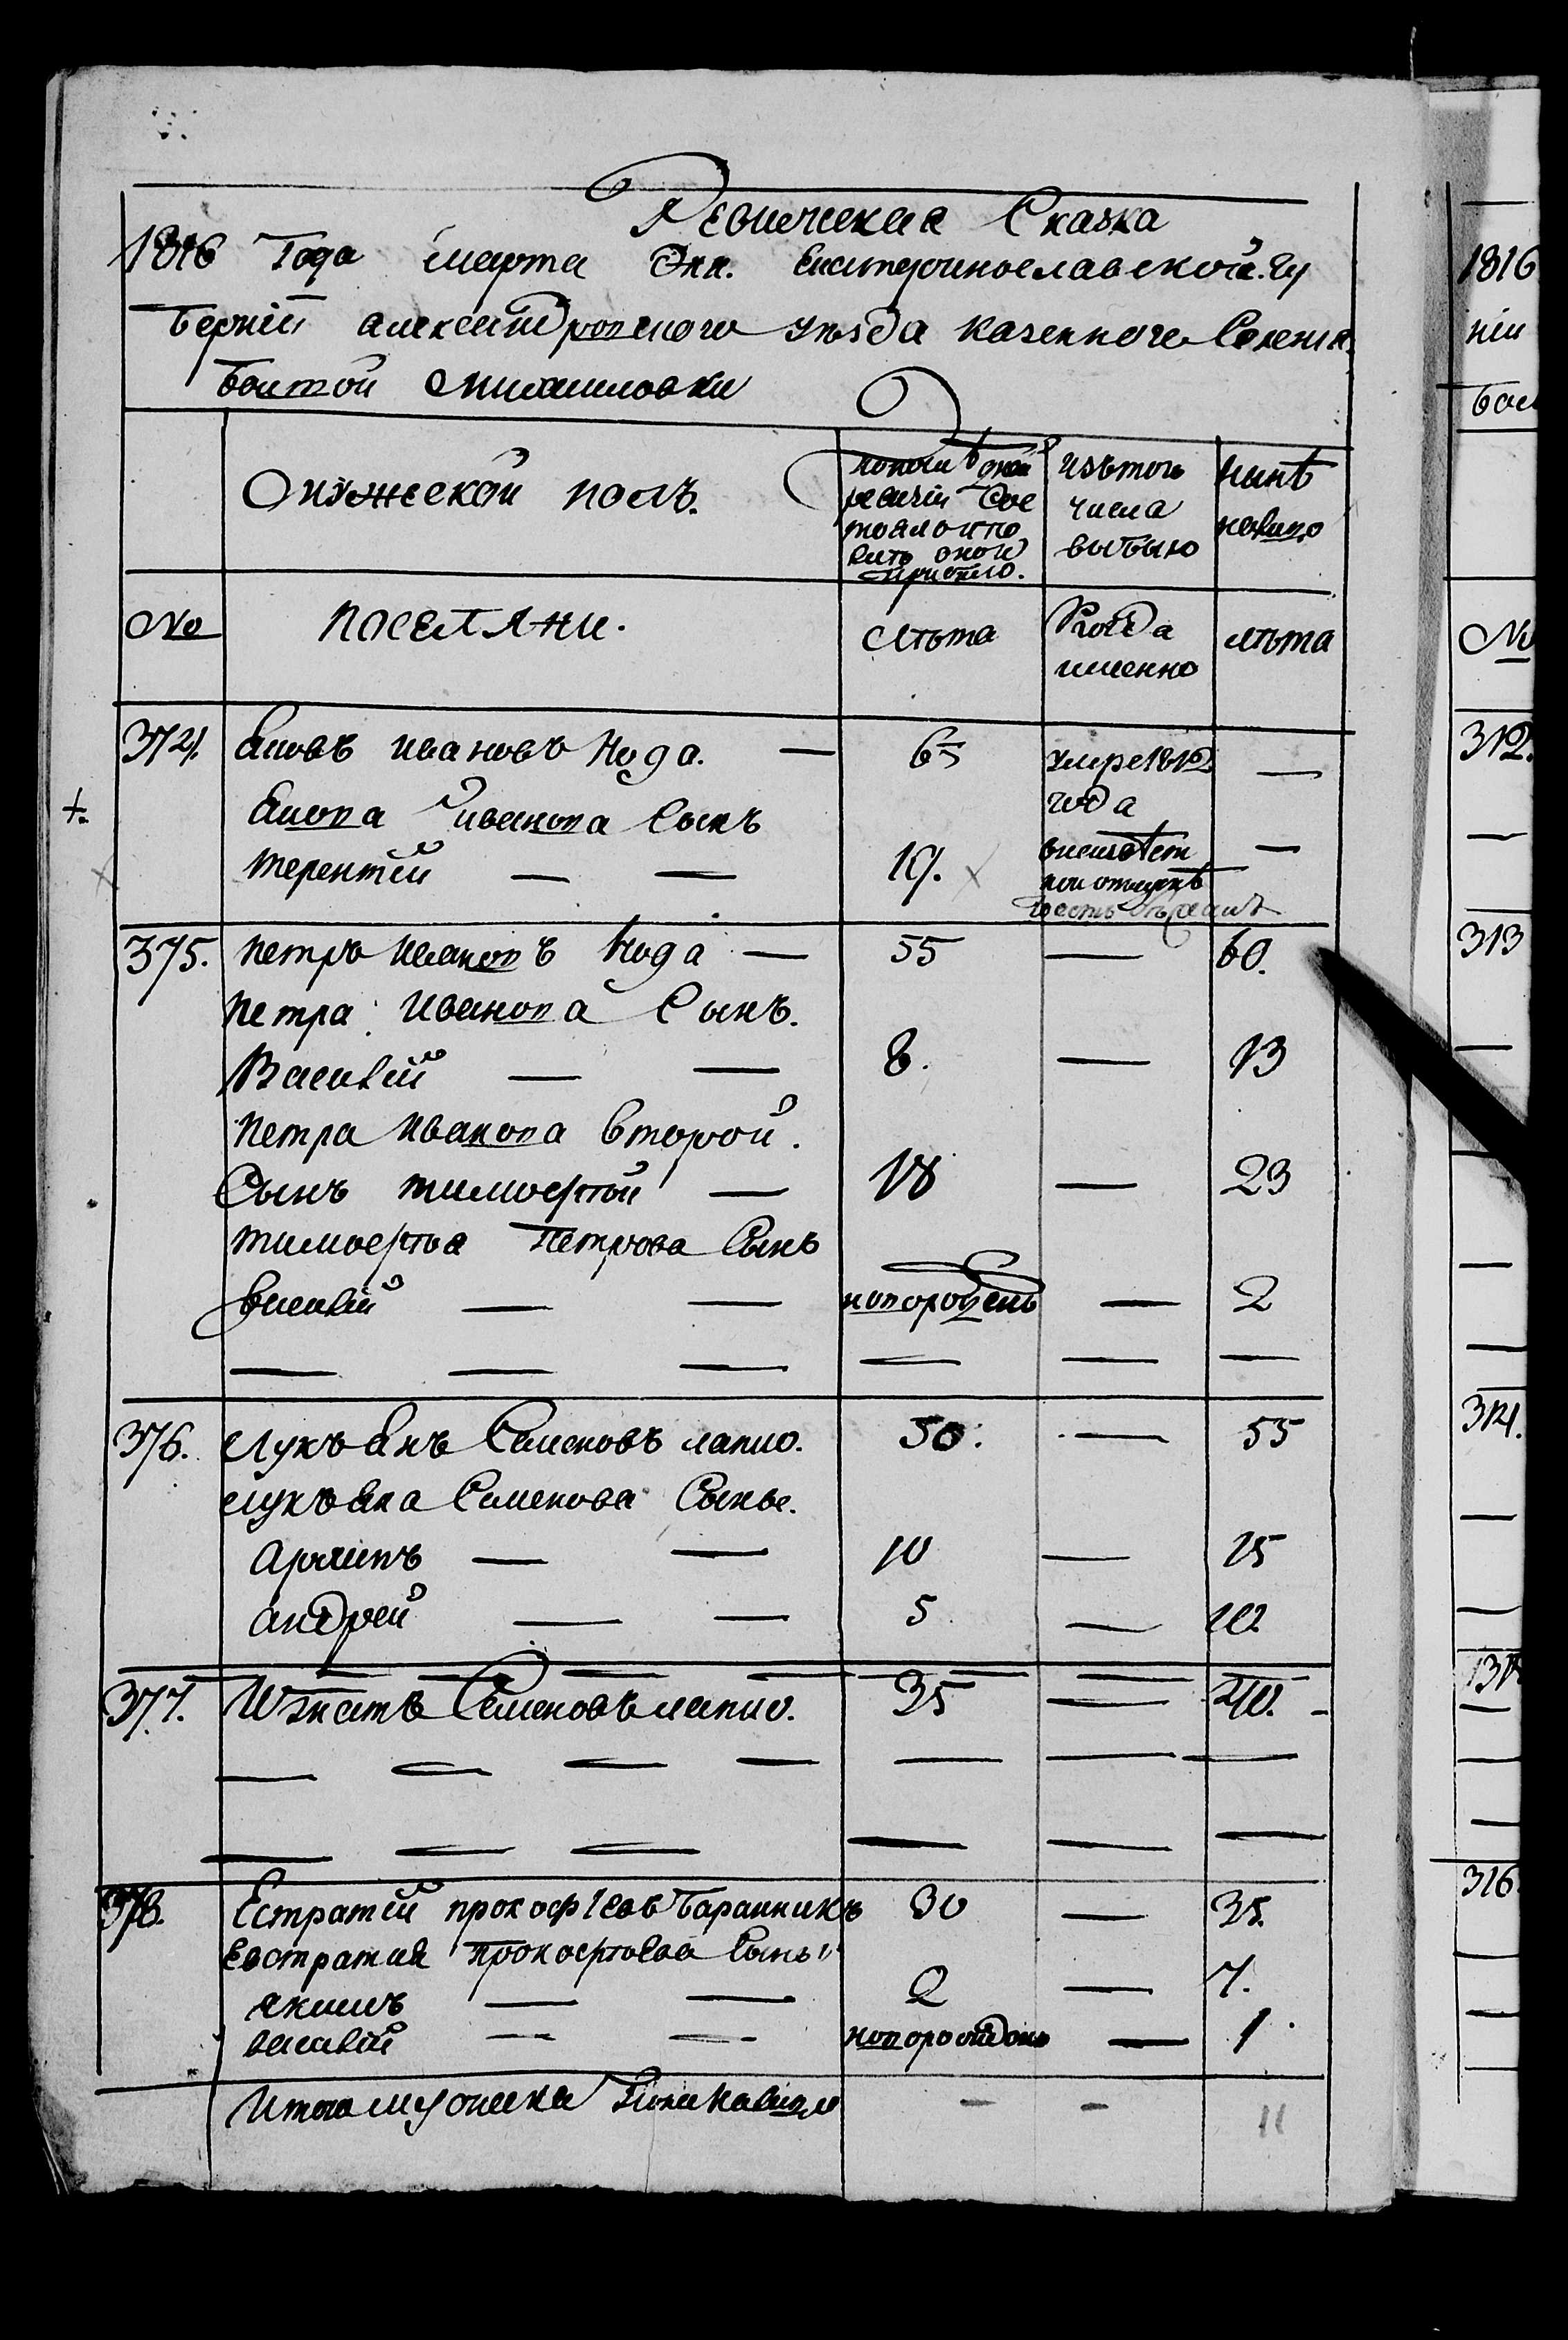 Ревижская Сказка
1816 Года марта Дня. Екатеринославской Гу
берніи александровского уѣзда казенного Селенія
болтой михаиловки
Мужеской полъ.
ревизіи Сос
тояло и по
слѣ оной
прибыло.
изътого
числа
выбыло
Нынѣ
налицо
№
поселяни.
Лѣта
Когда
именно
лѣта
374.
Яковъ ивановъ Нода. —
65
умре 1812
года
—
Якова иванова Сынъ
терентий — —
19.
—
375.
петръ ивановъ Нода —
55
—
60.
петра иванова Сынъ.
Василій — —
8.
—
13
петра иванова второй.
Сынъ тимофѣй —
18
—
23
тимофѣя петрова Сынъ
василій — —
новорожденъ
—
2
376.
Лукъянъ Семеновъ лапко.
50.
—
55
лукъяна Семенова Сынье.
Архипъ — —
10
—
15
андрей — —
5
—
10.
377.
Игнатъ Семеновъ лапко.
35
—
40.
378.
Естратий прокофіевъ баранникъ
30
—
35.
Евстратия прокофіева Сыны
якимъ — —
2
—
7.
василій — —
новорожденъ
—
1
Итого мужеска пола налицо
-
-
11
1816
ніи
бол
№
312.
313
314.
316.